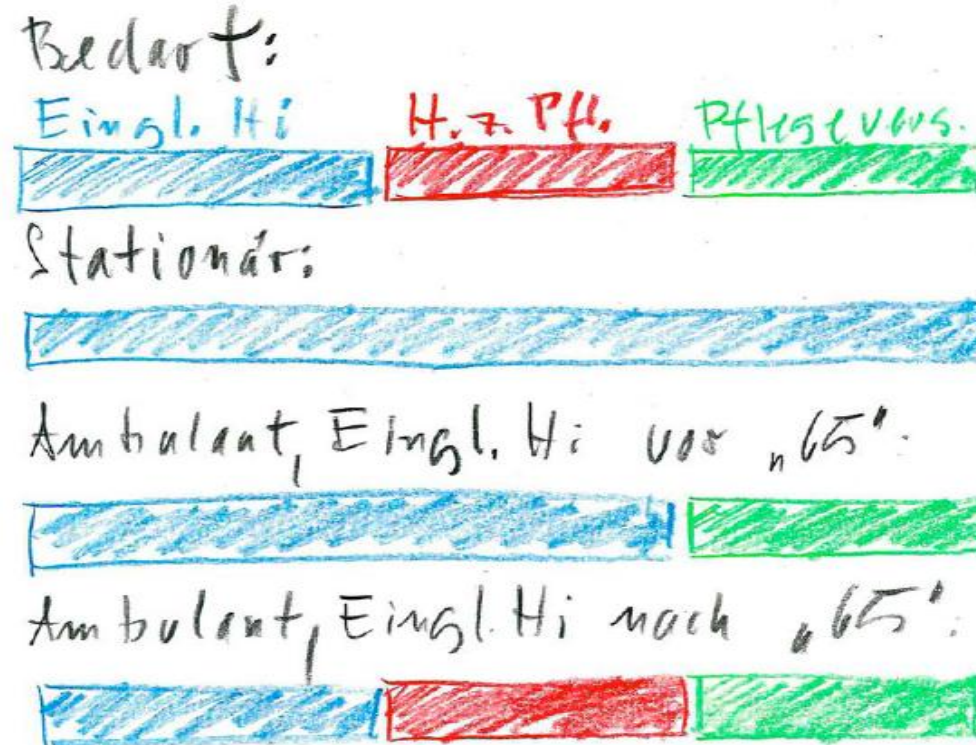 Bedarf:
Eingl. Hi H. z. Pfl. Pflegevers.
Stationär:
Ambulant, Eingl. Hi vor „65":
Ambulant, Eingl. Hi nach „65":